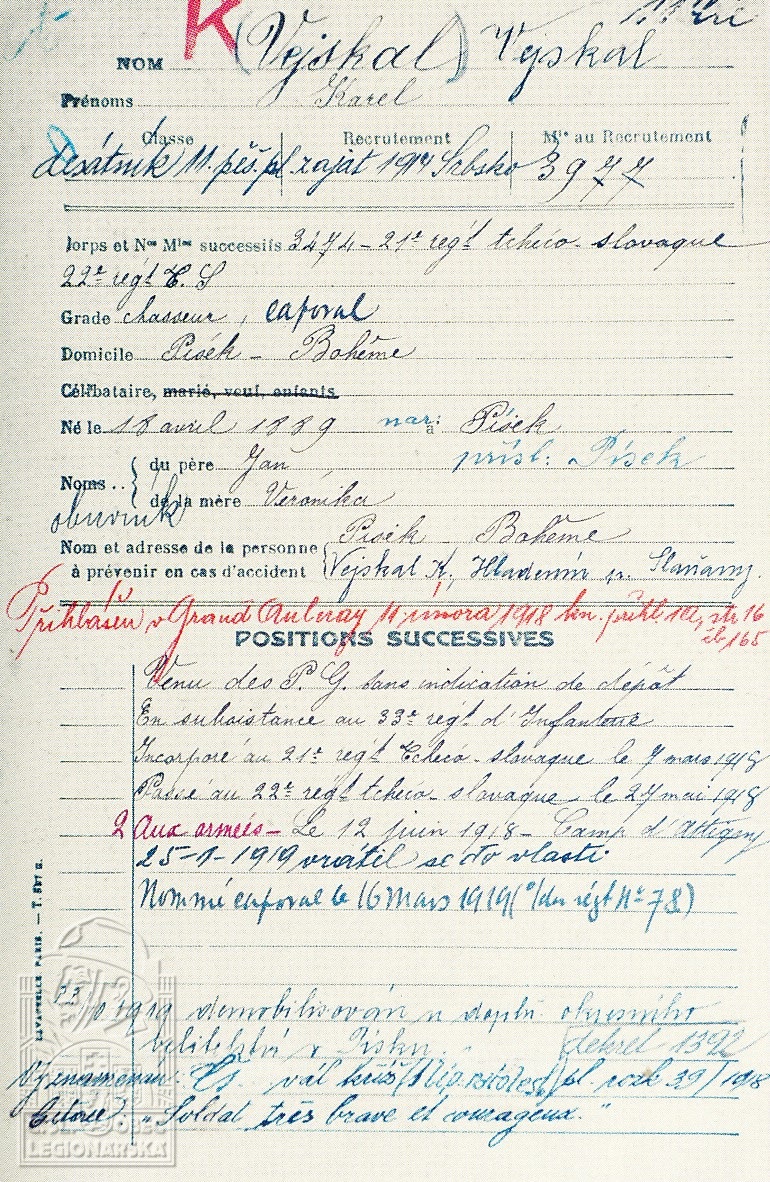 K
NOM (Vejskal) Vejskal
Prénoms Karel
Classe Recrutement Mle au Recrutement
desátník 11. pěš. pl. zajat 1914 Srbsko 3977
Corps et Nos Mles successifs 3474 - 21e regt tchéco-slovaque
22e regt T. S
Grade chasseur, caporal
Domicile Pisék - Bohême
Célibataire, marié, veuf, enfants
Né le 18 avril 1889 nar: à Písek
Noms .. du père Jan přísl: Písek
de la mère Veronika
obuvník
Nom et adresse de la personne à prévenir en cas d'accident
Pisék - Bohême
Vejskal K, p. Slaňany.
Přihlášen v Grand Aulnay 11 února 1918 str 16
165
POSITIONS SUCCESSIVES
Venu des P. G. sans indication de dépôt
En subsistance au 33e regt d'Infanterie
Incorporé au 21e regt Tchéco-slovaque le 7 mars 1918
Passé au 22e regt tchéco-slovaque le 27 mai 1918
2 Aux armées - Le 12 juin 1918 - Camp d'Attigny
25-1-1919 vrátil se do vlasti
Nommé caporal le 16 Mars 1919 (o/du régt No 78)
1919 demobilisován u doplň. okresního
velitelství v Písku. dekret 1392
Vyznamenán: Čs. vál. kříž pl. rozk 39/1918
Citace: "Soldat très brave et courageux."
LEGIONÁŘSKÁ